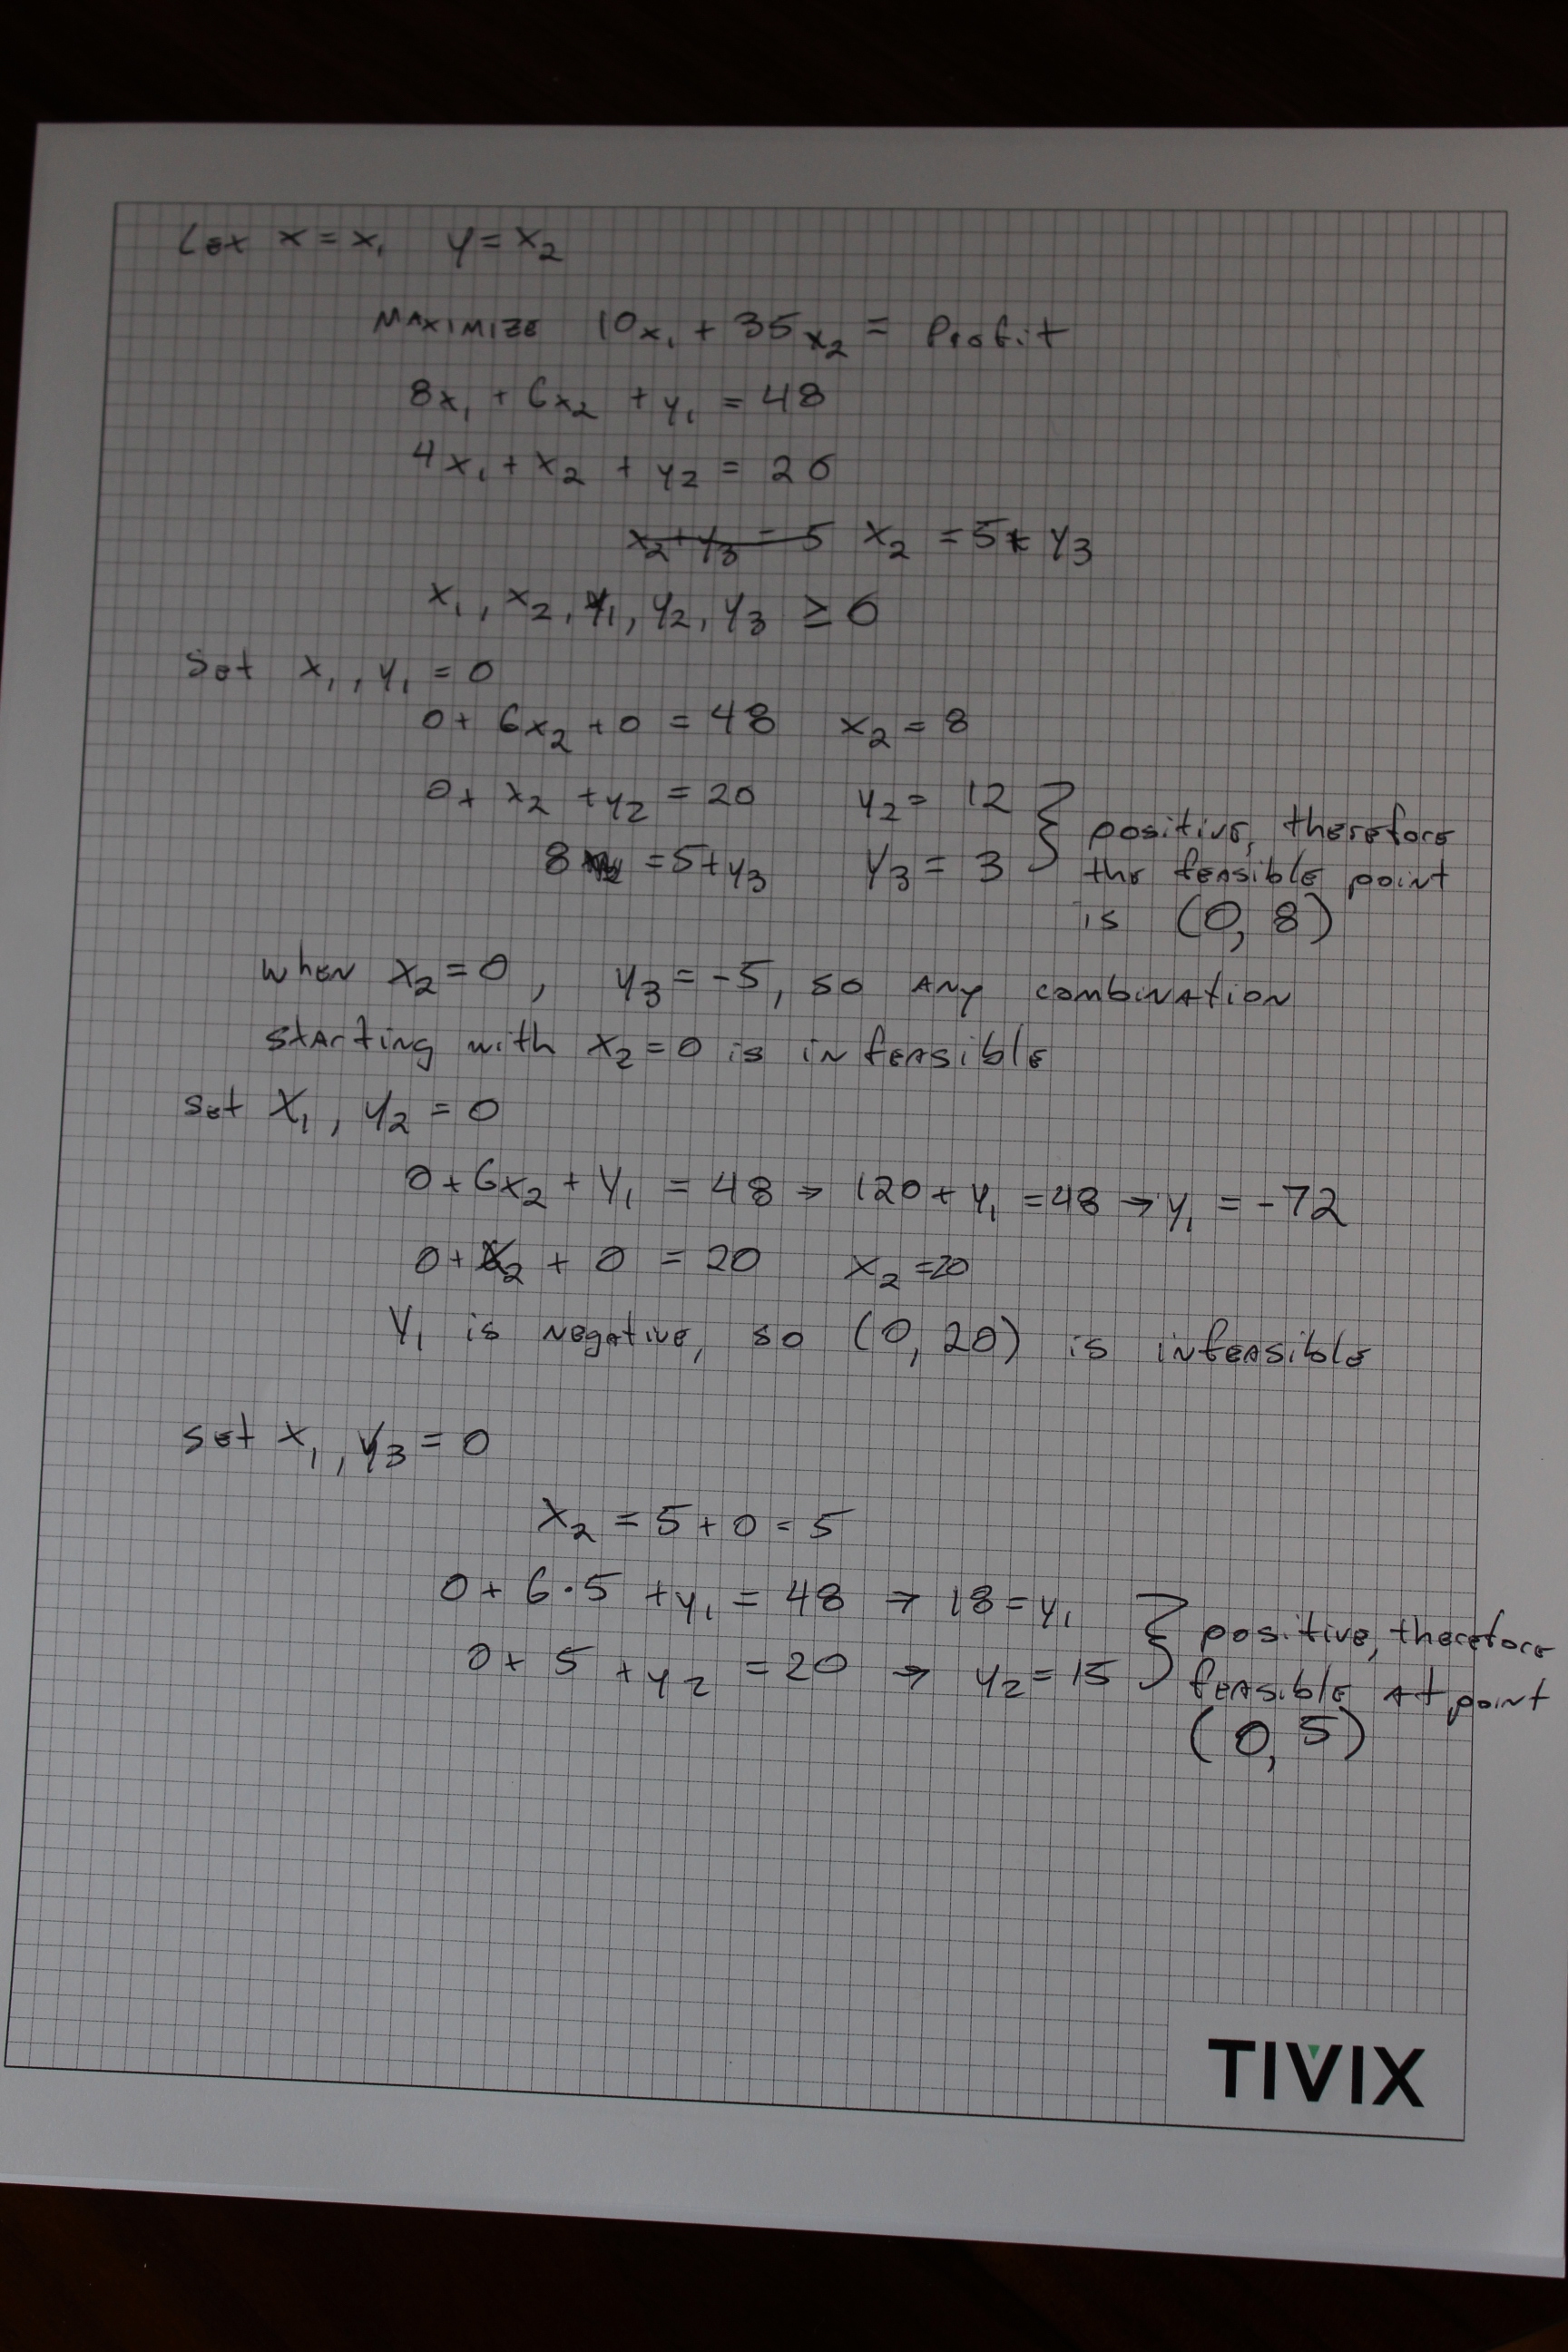 Let x = x₁ y = x₂
MAXIMIZE 10x₁ + 35x₂ = Profit
8x₁ + 6x₂ + y₁ = 48
4x₁ + x₂ + y₂ = 20
x₂ + y₃ = 5 x₂ = 5 + y₃
x₁, x₂, y₁, y₂, y₃ ≥ 0
Set x₁, y₁ = 0
0 + 6x₂ + 0 = 48 x₂ = 8
0 + x₂ + y₂ = 20 y₂ = 12 } positive, therefore
8 = 5 + y₃ y₃ = 3 the feasible point
is (0, 8)
when x₂ = 0, y₃ = -5, so any combination
starting with x₂ = 0 is infeasible
set x₁, y₂ = 0
0 + 6x₂ + y₁ = 48 → 120 + y₁ = 48 → y₁ = -72
0 + x₂ + 0 = 20 x₂ = 20
y₁ is negative, so (0, 20) is infeasible
set x₁, y₃ = 0
x₂ = 5 + 0 = 5
0 + 6·5 + y₁ = 48 → 18 = y₁ } positive, therefore
0 + 5 + y₂ = 20 → y₂ = 15 feasible at point
(0, 5)
TIVIX